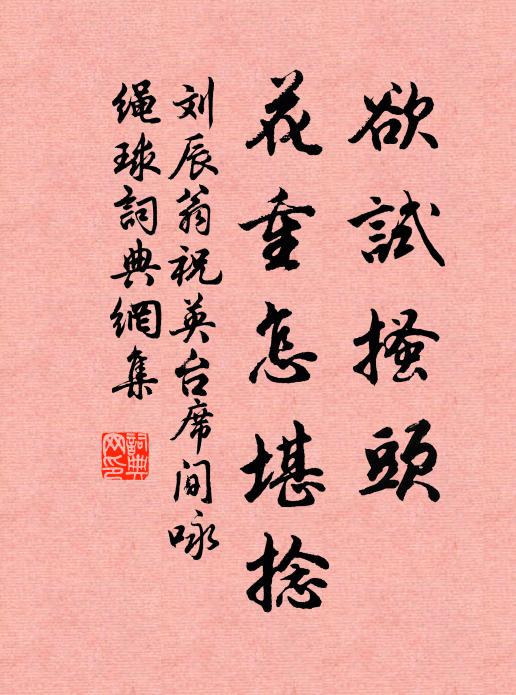 欲試搔頭
花重怎堪捻
刘辰翁祝英台席间咏
绳球詞典網集
詞典网印